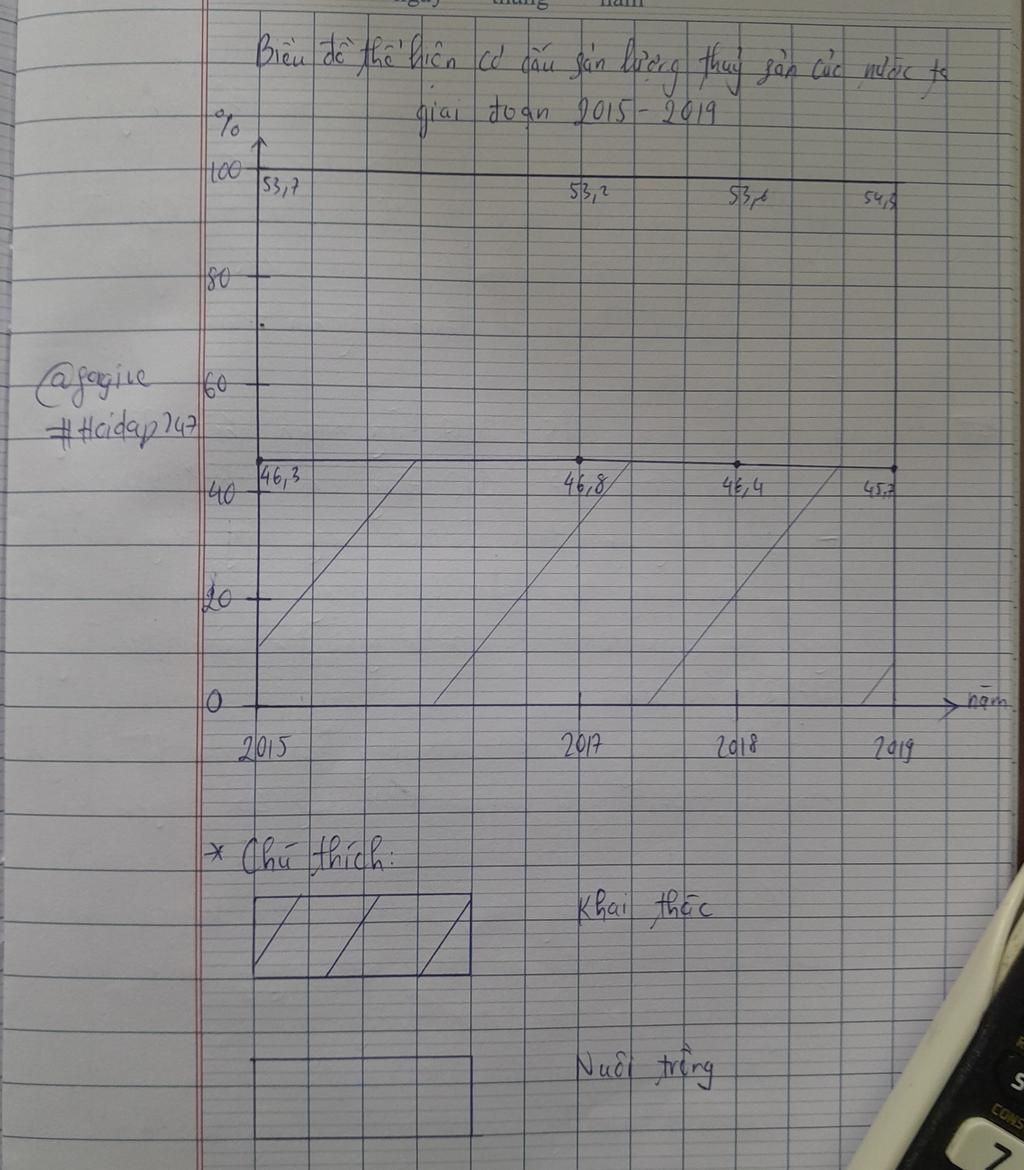 ngày tháng năm
Biểu đồ thể hiện cơ cấu sản lượng thuỷ sản của nước ta
giai đoạn 2015 - 2019
%
100
53,7 53,2 53,6 54,3
80
60
@gogiue
##Hoidap247
46,3 46,8 46,4 45,7
40
20
0 năm
2015 2017 2018 2019
* Chú thích:
Khai thác
Nuôi trồng
S
CONS
7